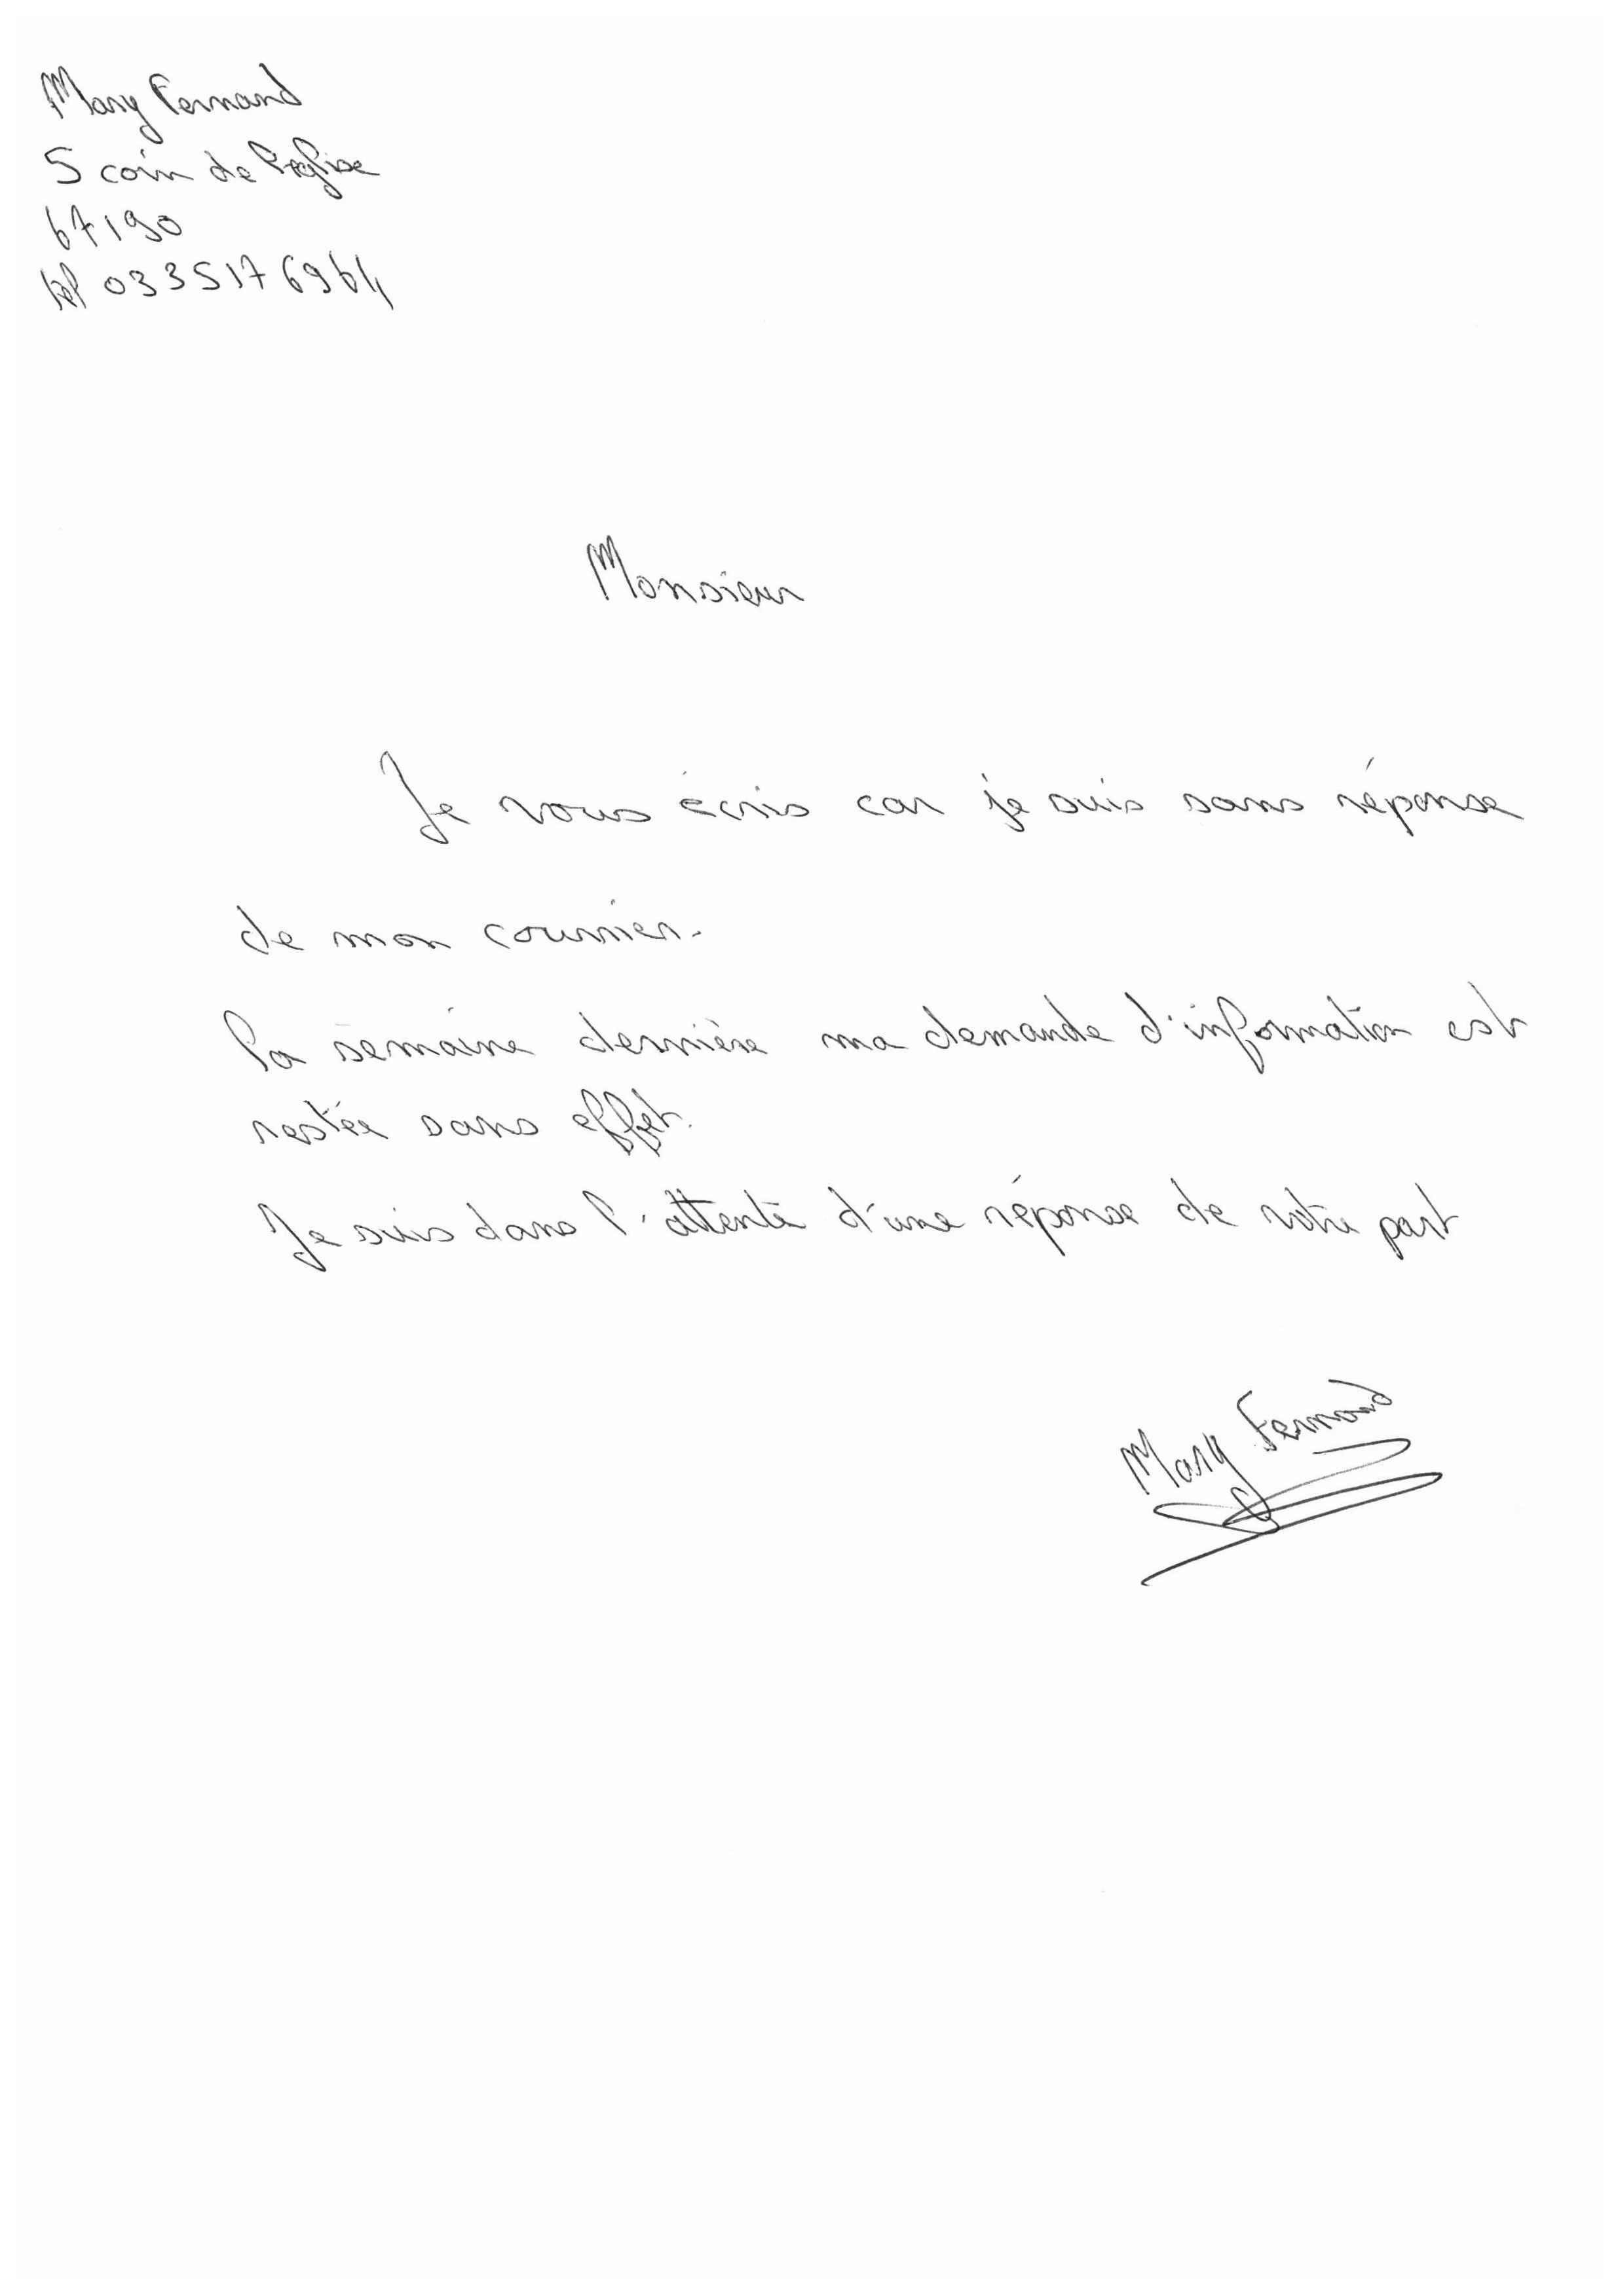 Mary Fernand
5 coin de l'église
67190
tél 0335176964
Monsieur
Je vous écris car je suis sans réponse
de mon courrier.
la semaine dernière ma demande d'information est
restée sans effet.
Je suis dans l'attente d'une réponse de votre part
Mary Fernand